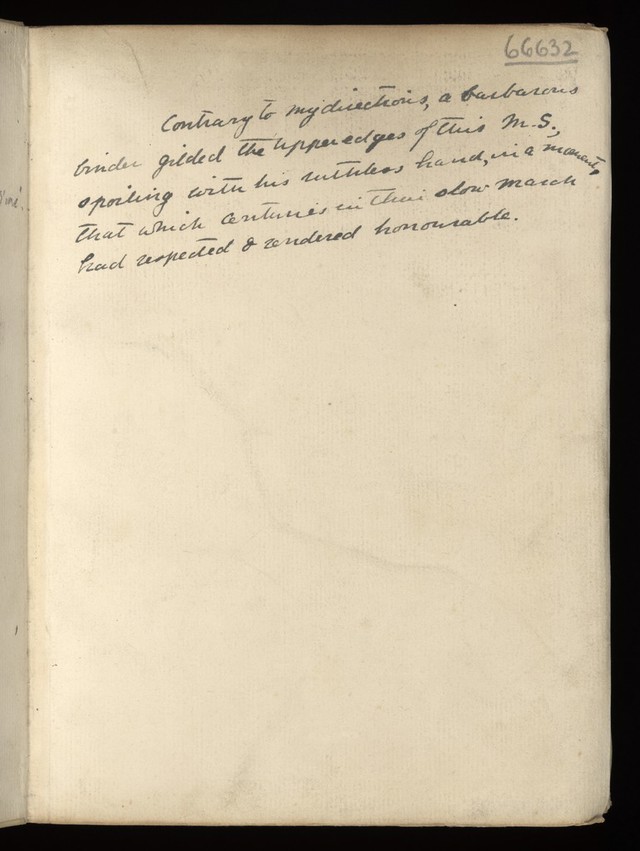 66632
Contrary to my directions, a barbarous
binder gilded the upper edges of this M.S.,
spoiling with his ruthless hand, in a moment,
that which centuries in their slow march
had respected & rendered honourable.